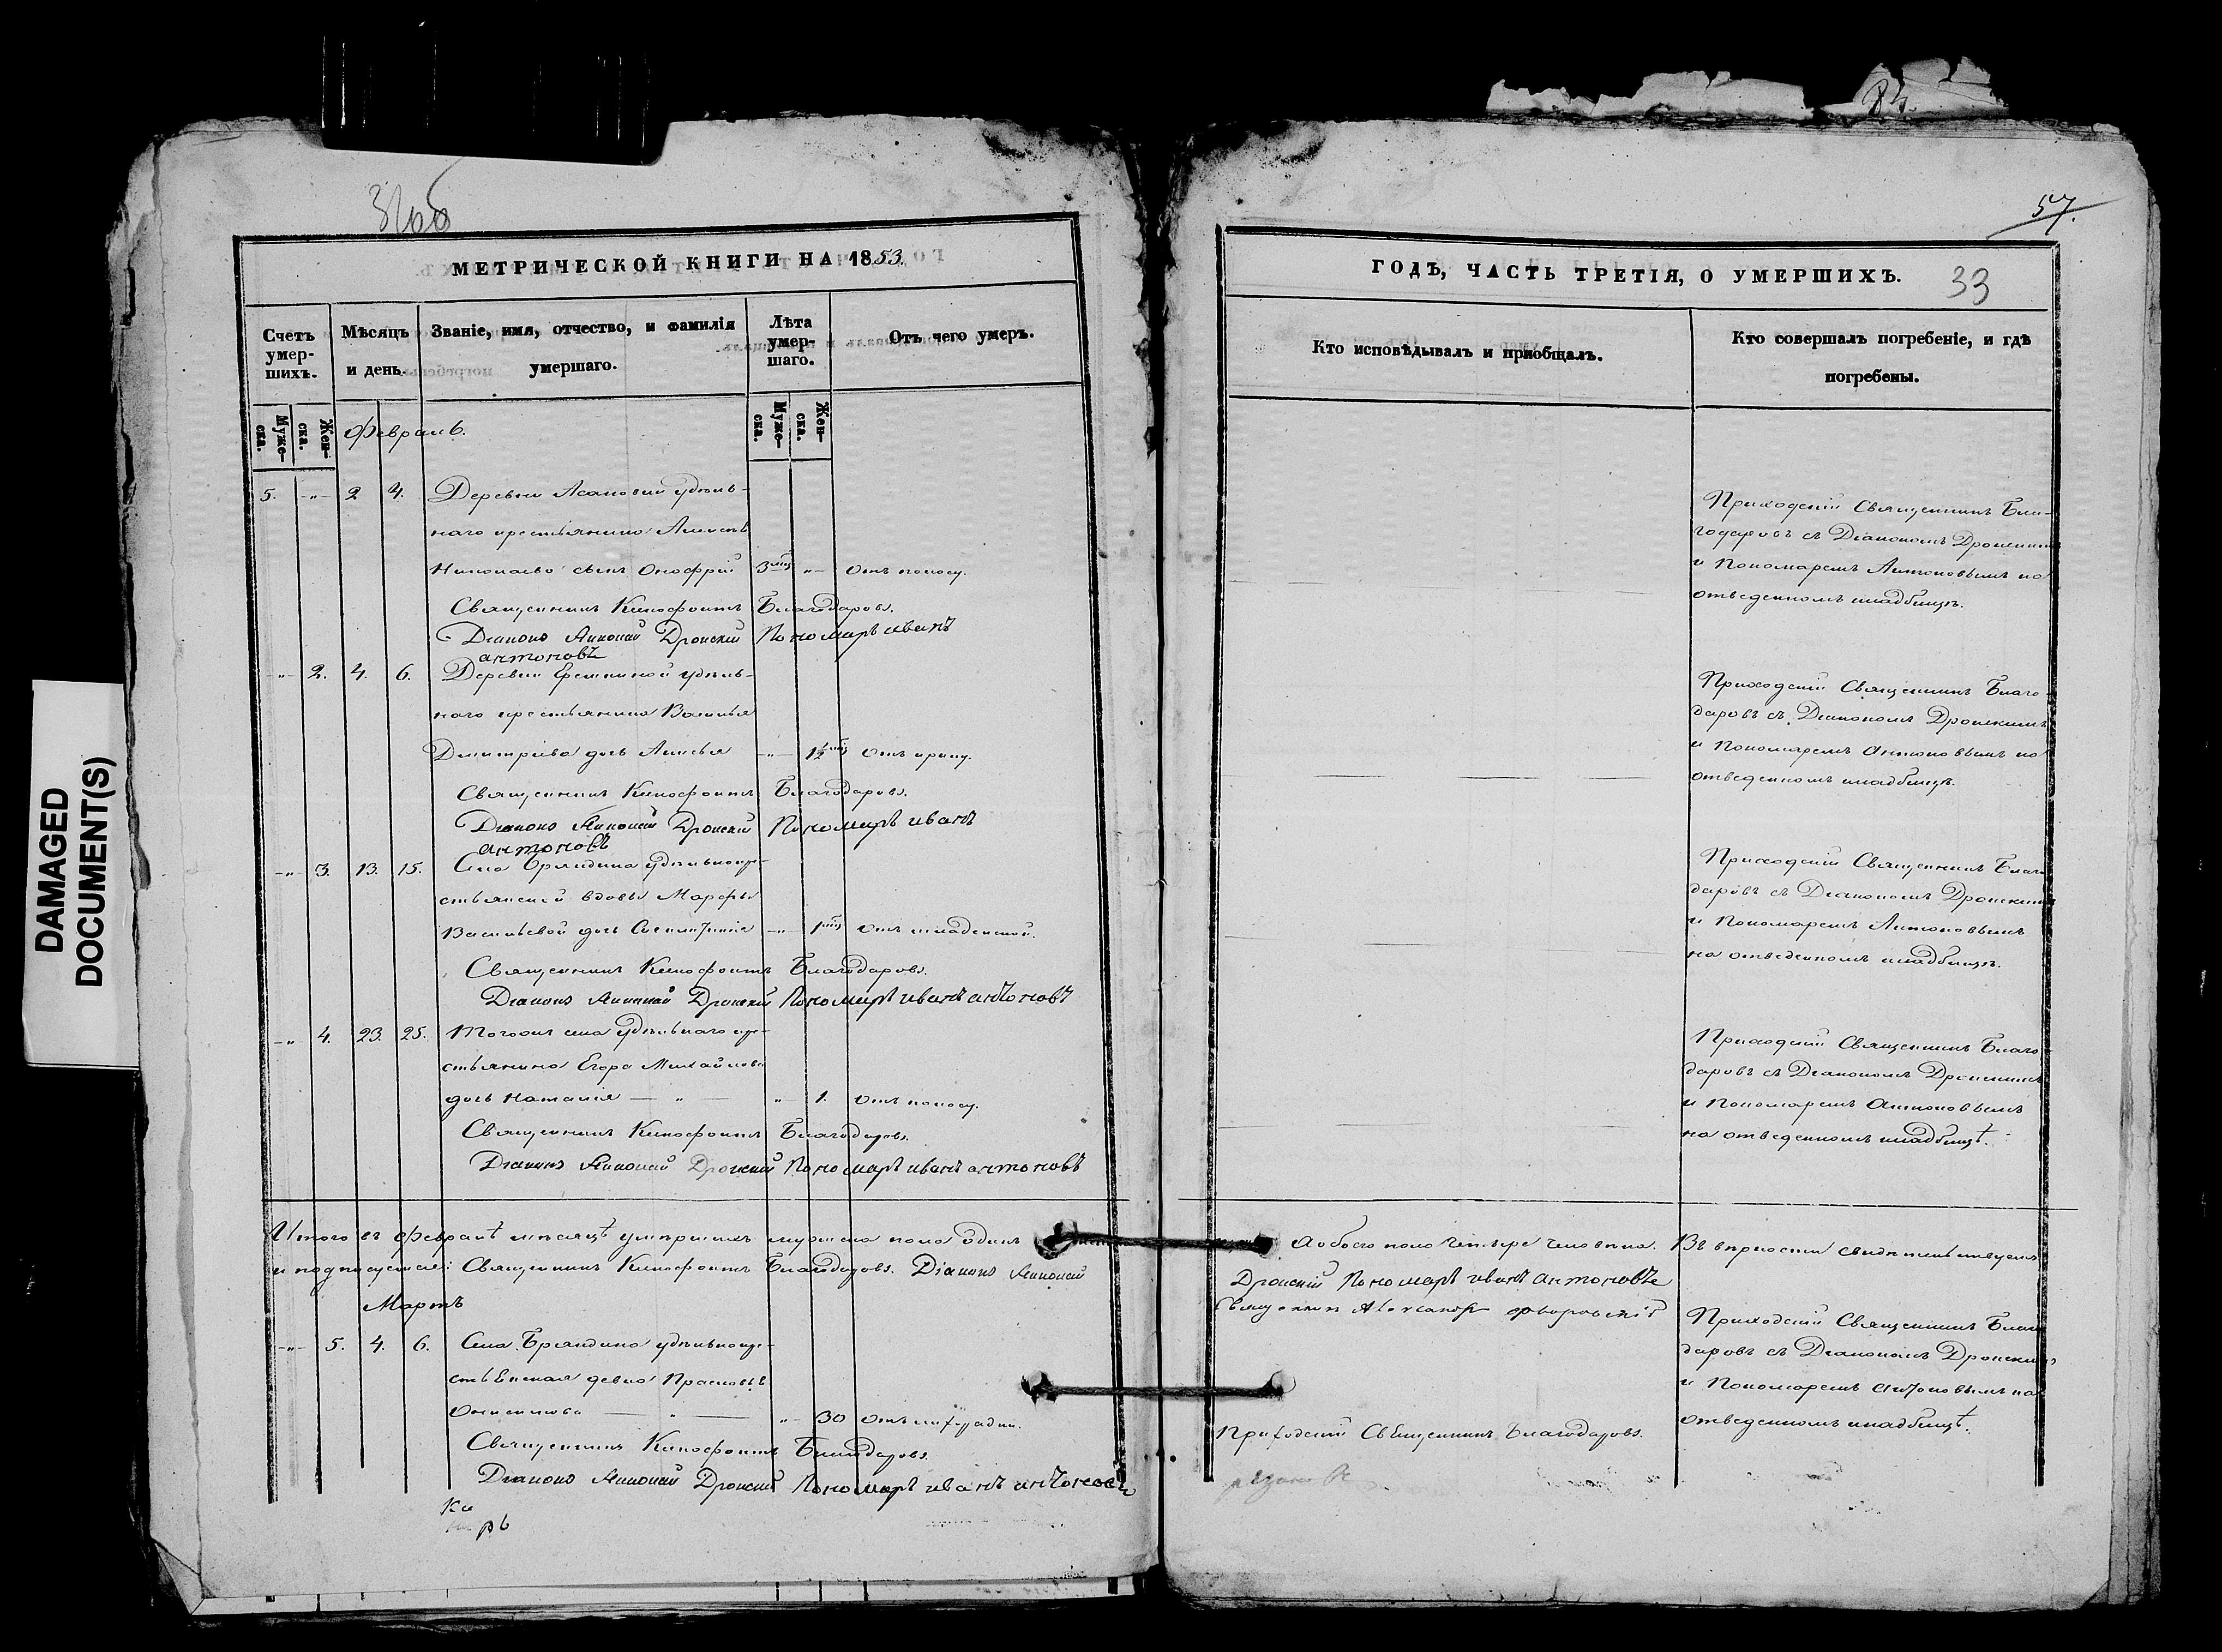 DAMAGED
DOCUMENT(S)
57.
МЕТРИЧЕСКОЙ КНИГИ НА 1853
Счетъ умер-шихъ.
Мѣсяцъ и день.
Званіе, имя, отчество, и фамилія умершаго.
Лѣта умер-шаго.
Отъ чего умеръ.
Муже-ска.
Жен-ска.
Муже-ска.
Жен-ска.
Февраль.
5. -"- 2 4. Деревни удѣль-
наго крестьянина Алексѣя
Николаева сынъ Онофрій 3 "- Отъ поносу.
Священникъ Ксенофонтъ Благодаровъ.
Діаконъ Дронскій Пономарь иванъ
антоновъ
-"- 2. 4. 6. Деревни удѣль-
наго крестьянина Василья
Дмитріева дочь -"- 1/2 Отъ крику.
Священникъ Ксенофонтъ Благодаровъ.
Діаконъ Дронскій Пономарь иванъ
антоновъ
-"- 3. 13. 15. Села Бряндина удѣльнокре-
стьянской вдовы Марфы
Васильевой дочь -"- 1 Отъ младенской.
Священникъ Ксенофонтъ Благодаровъ.
Діаконъ Дронскій Пономарь иванъ антоновъ
-"- 4. 23. 25. Тогожъ села удѣльнаго кре-
стьянина Егора Михайлова
дочь Наталія — " — " 1. Отъ поносу.
Священникъ Ксенофонтъ Благодаровъ.
Діаконъ Дронскій Пономарь иванъ антоновъ
Итого въ Февралѣ мѣсяцѣ умершихъ мужеска пола одинъ
и подписуемся: Священникъ Ксенофонтъ Благодаровъ. Діаконъ
Мартъ
-"- 5. 4. 6. Села Бряндина удѣльнокре-
стьянская девка Прасковья
— " — "- 30 Отъ лихорадки.
Священникъ Ксенофонтъ Благодаровъ.
Діаконъ Дронскій Пономарь иванъ антоновъ
ГОДЪ, ЧАСТЬ ТРЕТІЯ, О УМЕРШИХЪ. 33
Кто исповѣдывалъ и пріобщалъ.
Кто совершалъ погребеніе, и гдѣ погребены.
Приходскій Священникъ Бла-
годаровъ съ Діакономъ Дронскимъ
и Пономаремъ Антоновымъ на
отведенномъ кладбищѣ.
Приходскій Священникъ Благо-
даровъ съ Діакономъ Дронскимъ
и Пономаремъ Антоновымъ на
отведенномъ кладбищѣ.
Приходскій Священникъ Благо-
даровъ съ Діакономъ Дронскимъ
и Пономаремъ Антоновымъ
на отведенномъ кладбищѣ.
Приходскій Священникъ Благо-
даровъ съ Діакономъ Дронскимъ
и Пономаремъ Антоновымъ
на отведенномъ кладбищѣ.
А обоего пола четыре человека. Въ верности свидетельствуемъ
Дронскій Пономарь иванъ антоновъ
Приходскій Священникъ Благо-
даровъ съ Діакономъ Дронскимъ
и Пономаремъ Антоновымъ на
отведенномъ кладбищѣ.
Приходскій Священникъ Благодаровъ.